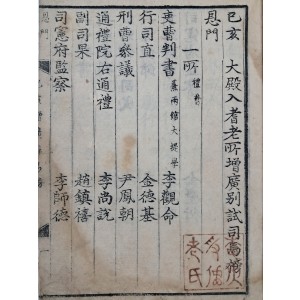 己亥 大殿入耆老所增廣別試司馬榜
恩門
一所 禮曹
吏曹判書 兼兩館大提學 李觀命
行司直 金德基
刑曹參議 尹鳳朝
通禮院右通禮 李尚說
副司果 趙鎮禧
司憲府監察 李師德
恩門